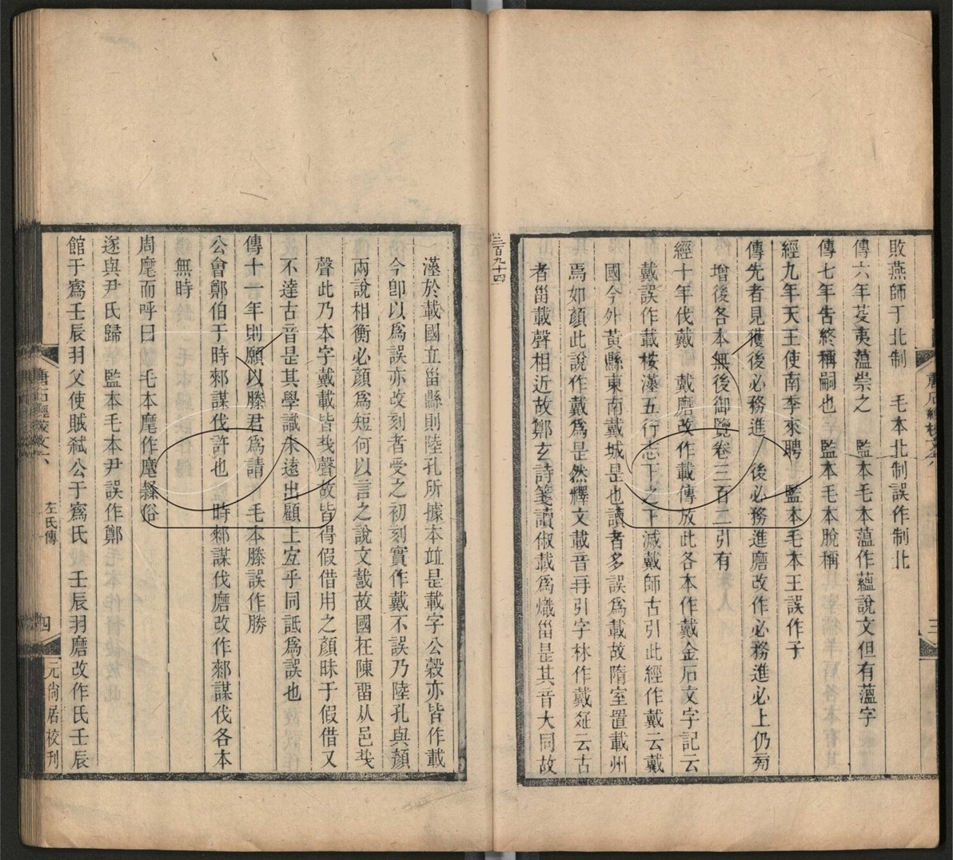 敗燕師于北制　毛本北制誤作制北
傳六年芟夷薀崇之　監本毛本薀作蘊說文但有薀字
傳七年告終稱嗣也　監本毛本脫稱
經九年天王使南季來聘　監本毛本王誤作子
傳先者見獲後必務進　後必務進磨改作必務進必上仍旁
增後各本無後御覽卷三百二引有
經十年伐戴　戴磨改作載傳放此各本作戴金石文字記云
戴誤作載桉漢五行志下之下減戴師古引此經作戴云戴
國今外黃縣東南戴城是也讀者多誤為載故隋室置載州
焉如顏此說作戴為是然釋文載音再引字林作戴𢓜云古
者甾載聲相近故鄭玄詩箋讀俶載為熾甾是其音大同故
三百九十四
漢於載國立甾縣則陸孔所據本竝是載字公穀亦皆作載
今卽以為誤亦改刻者受之初刻實作戴不誤乃陸孔與顏
兩說相衡必顏為短何以言之說文𢧵故國在陳畱从邑𢦏
聲此乃本字戴載皆𢦏聲故皆得假借用之顏昧于假借又
不達古音是其學識未遠出顧上宐乎同詆為誤也
傳十一年則願以滕君為請　毛本滕誤作勝
公會鄭伯于時郲謀伐許也　時郲謀伐磨改作郲謀伐各本
無時
周麾而呼曰　毛本麾作麾繇俗
遂與尹氏歸　監本毛本尹誤作鄭
館于寪壬辰羽父使賊弒公于寪氏　壬辰羽磨改作氏壬辰
唐石經校文六
左氏傳
四
元尙居校刊
三